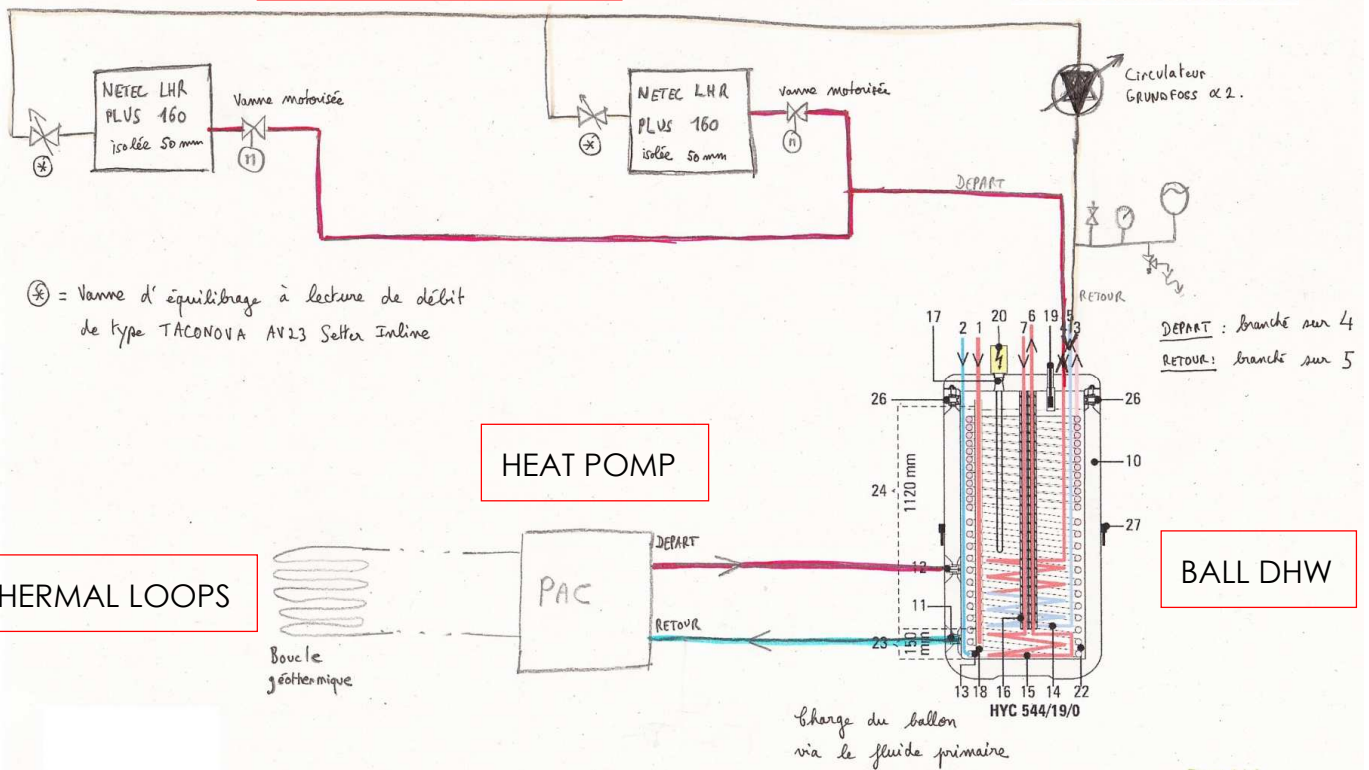 NETEC LHR
PLUS 160
isolée 50 mm
Vanne motorisée
*
M
NETEC LHR
PLUS 160
isolée 50 mm
Vanne motorisée
*
M
Circulateur
GRUNDFOSS α2.
DEPART
RETOUR
* = Vanne d'équilibrage à lecture de débit
de type TACONOVA AV23 Setter Inline
DEPART : branché sur 4
RETOUR : branché sur 5
17
2
1
20
7
6
19
5
3
26
26
10
24
1120 mm
27
12
11
23
150 mm
13
18
16
16
15
14
22
HYC 544/19/0
HEAT POMP
HERMAL LOOPS
BALL DHW
PAC
DEPART
RETOUR
Boucle
géothermique
Charge du ballon
via le fluide primaire